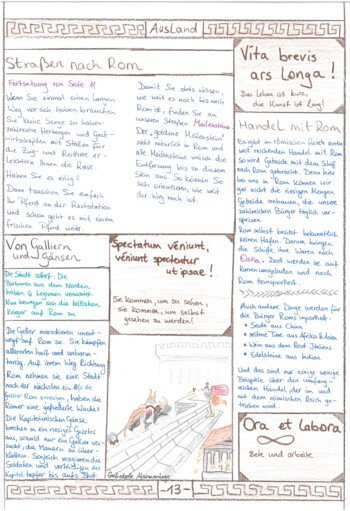 Ausland
Straßen nach Rom
Fortsetzung von Seite 11
Wenn Sie einmal einen langen
Weg vor sich haben brauchen
Sie keine Sorge zu haben:
zahlreiche Herbergen und Gast-
wirtschaften mit Ställen für
die Zug- und Reittiere er-
leichtern Ihnen die Reise.
Haben Sie es eilig?
Dann tauschen Sie einfach
Ihr Pferd an der Raststation
und schon geht es mit einem
frischen Pferd weiter.
Damit Sie stets wissen,
wie weit es noch bis nach
Rom ist, finden Sie an
unseren Straßen Meilensteine.
Der "goldene Meilenstein"
steht natürlich in Rom und
alle Meilensteine weisen die
Entfernung bis zu diesem
Stein aus. So können Sie
sich orientieren, wie weit
der Weg noch ist.
Vita brevis
ars longa!
Das Leben ist kurz,
die Kunst ist lang!
Handel mit Rom
Es gibt im römischen Reich einen
weit reichenden Handel mit Rom.
So wird Getreide mit dem Schiff
nach Rom gebracht. Denn hier
bei uns in Rom können wir
gar nicht die riesigen Mengen
Getreide anbauen, die unsere
zahlreichen Bürger täglich ver-
speisen.
Rom selbst besitzt bekanntlich
keinen Hafen. Darum bringen
die Schiffe ihre Waren nach
Ostia. Dort werden sie auf
Karren umgeladen und nach
Rom transportiert.
Auch andere Dinge wurden für
die Bürger Roms importiert:
• Seide aus China
• seltene Tiere aus Afrika & Asien
• Wein aus dem Rest Italiens
• Edelsteine aus Indien
Und das sind nur einige wenige
Beispiele über den umfang-
reichen Handel der im und
mit dem römischen Reich ge-
trieben wird.
Ora et labora
Bete und arbeite.
Von Galliern
und Gänsen
Die Stadt zittert. Die
Barbaren aus dem Norden
haben 6 Legionen vernichtet.
Nun bewegen sich die keltischen
Krieger auf Rom zu.
Die Gallier marschieren unent-
wegt auf Rom zu. Sie kämpfen
allerorten hart und unbarm-
herzig. Auf ihrem Weg Richtung
Rom nehmen sie eine Stadt
nach der nächsten ein. Als die
Gallier Rom erreichen, haben die
Römer eine gefiederte Wache!
Die Kapitolinischen Gänse
brechen in ein riesiges Gezeter
aus, sobald nur ein Gallier ver-
sucht, die Mauern zu über-
klettern. Sogleich reagieren die
Soldaten und verteidigen das
Kapitol tapfer bis aufs Blut.
Spectatum veniunt,
veniunt spectentur
ut ipsae!
Sie kommen, um zu sehen,
sie kommen, um selbst
gesehen zu werden!
Gefiederte Alarmanlage
-13-